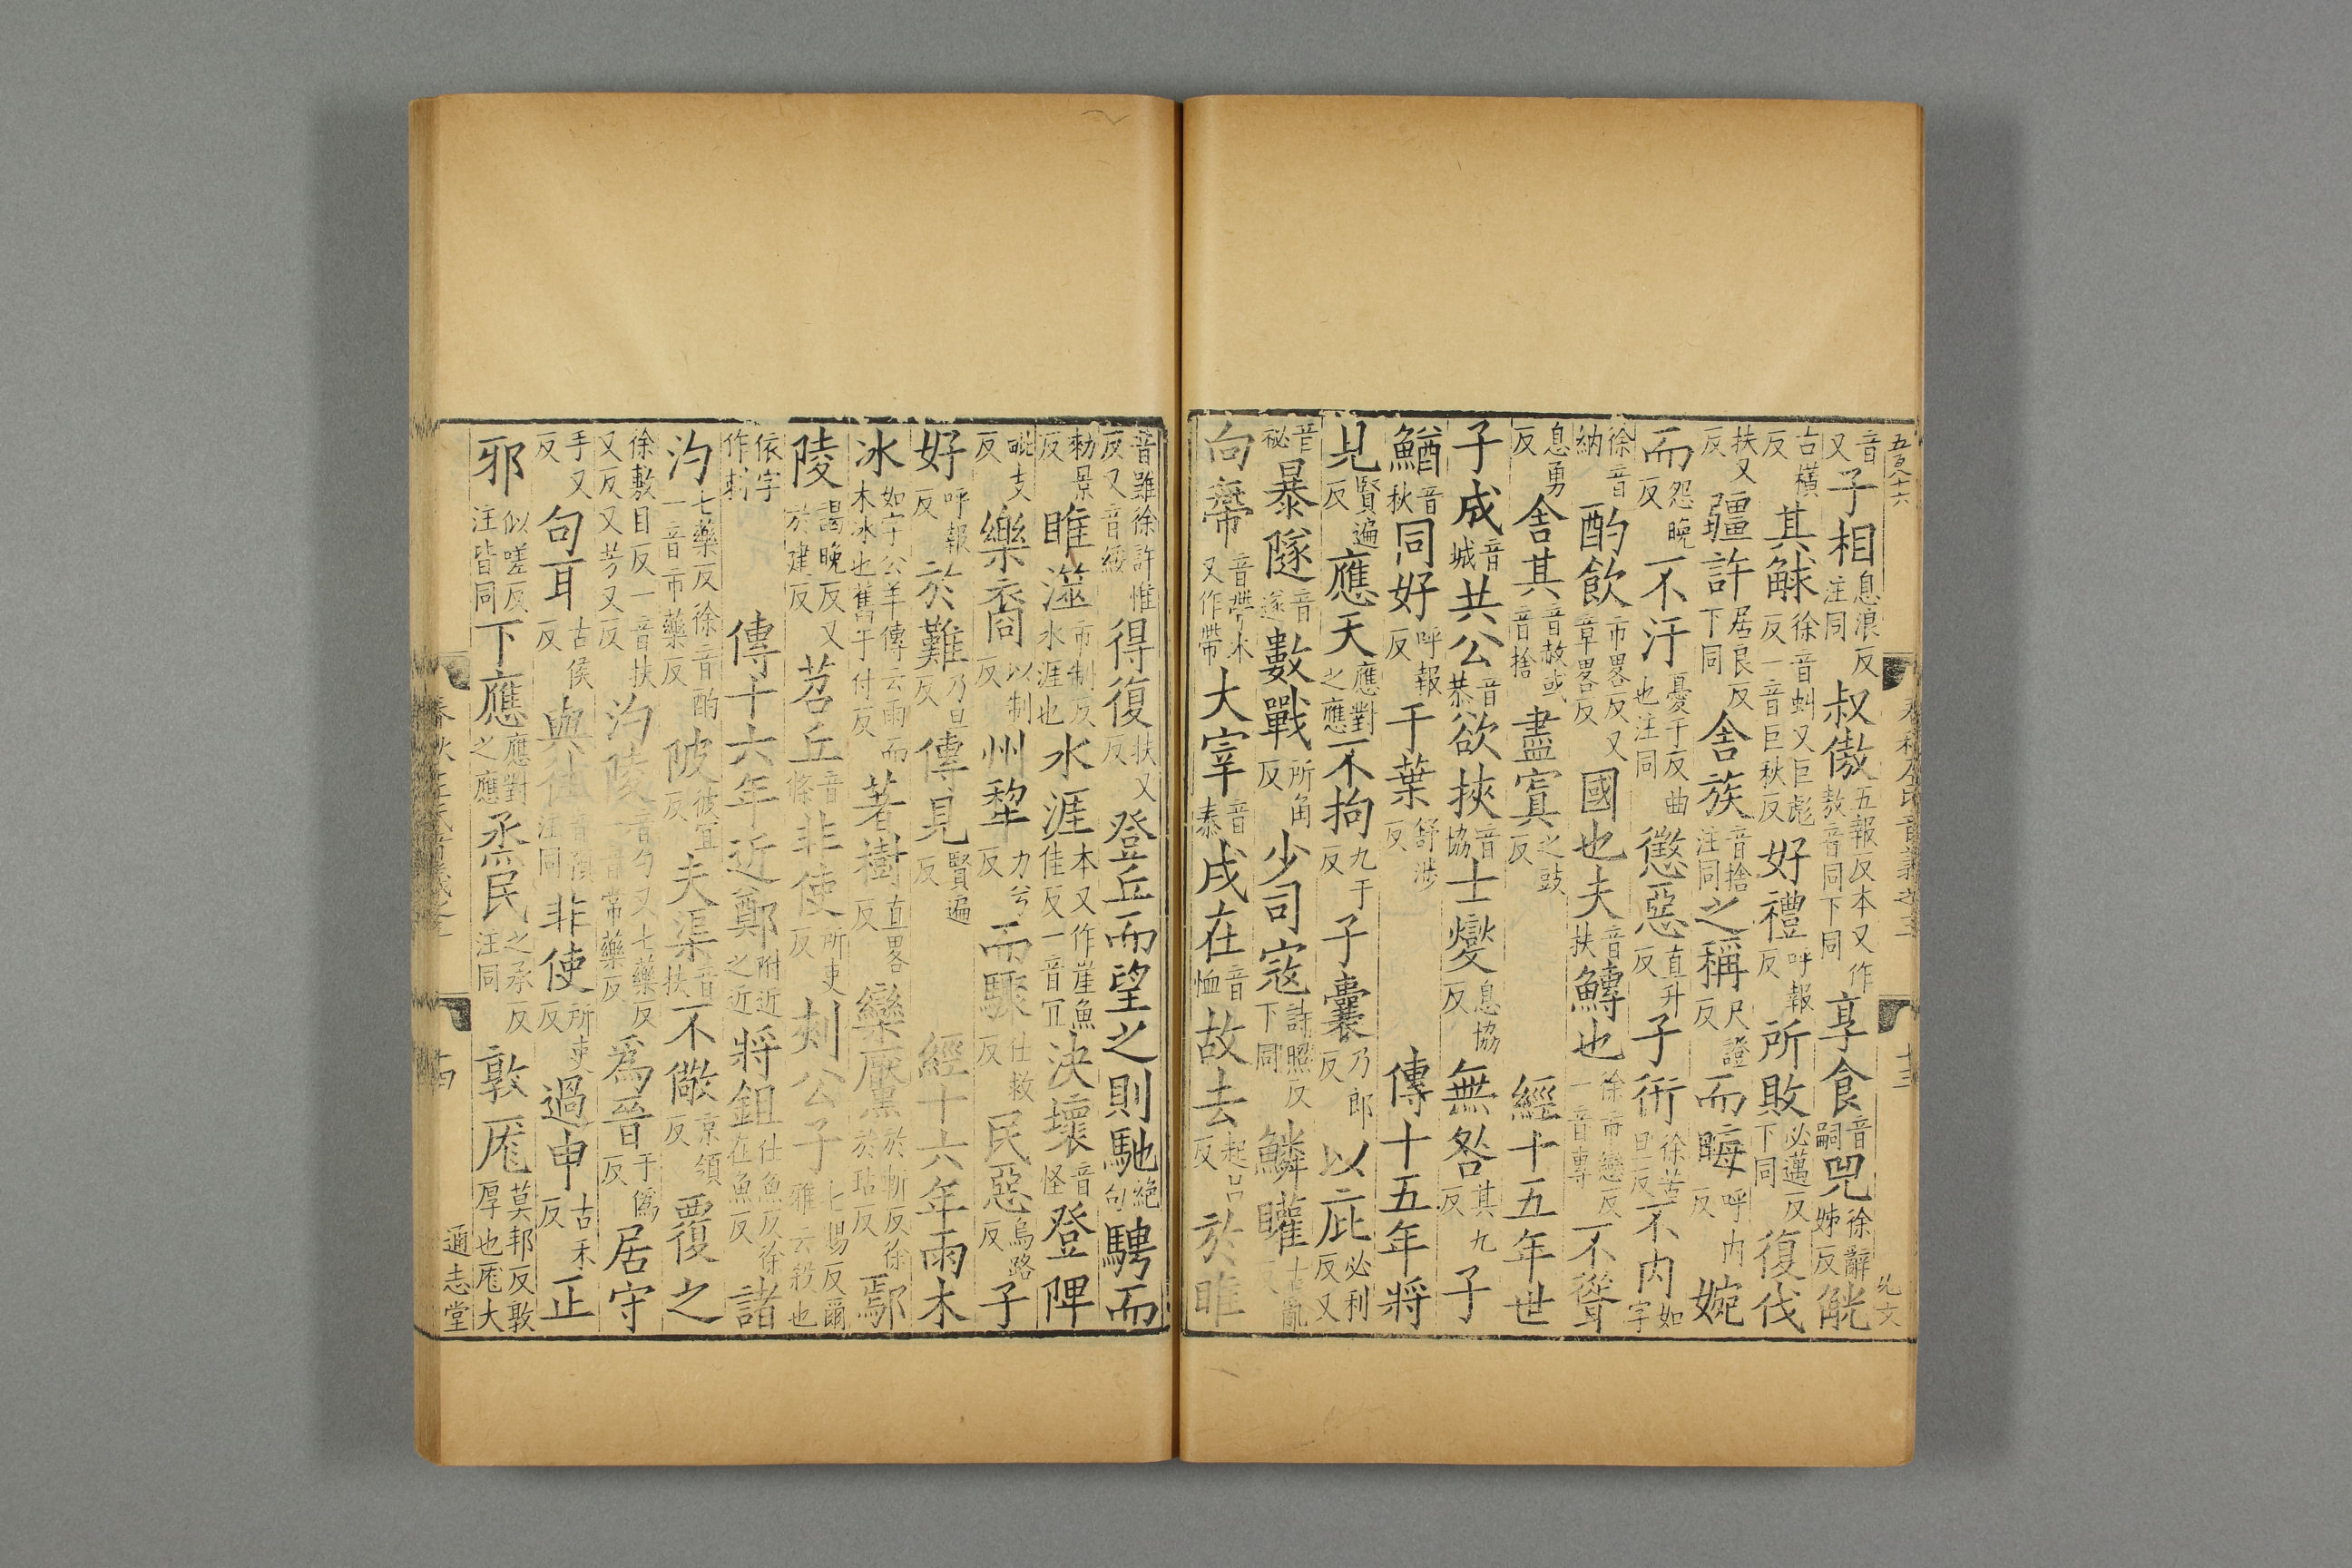 五百八十六
音又子相息浪反注同叔傲五報反本又作敖音同下同享食音嗣兕徐辭姊反觥
古橫反其觩徐音虯又巨彪反一音巨秋反好禮呼報反所敗必邁反下同復伐
扶又反疆許居良反下同舍族音捨注同之稱尺證反而晦呼內反婉
而怨晚反不汙憂于反曲也注同懲惡直升反子衎徐苦旦反不內如字
徐音納酌飲市畧反又章畧反國也夫音扶鱄也徐市戀反一音專不聳
息勇反舍其音赦或音捨盡寘之豉反經十五年世
子成音城共公音恭欲挾音協士燮息協反無咎其九反子
鰌音秋同好呼報反于葉舒涉反傳十五年將
見賢遍反應天應對之應不拘九于反子囊乃郎反以庇必利反又
音祕暴隧音遂數戰所角反少司寇詩照反下同鱗矔古亂反
向帶音帶本又作帶大宰音泰戌在音恤故去起呂反於睢
音雖徐許惟反又音綏得復扶又反登丘而望之則馳絕句騁而
勑景反睢澨市制反水涯也水涯本又作崖魚佳反一音宜決壞音怪登陴
毗支反樂裔以制反州犂力兮反而驟仕救反民惡烏路反子
好呼報反於難乃旦反傳見賢遍反經十六年雨木
冰如字公羊傳云雨而木冰也舊于付反著樹直畧反欒黶於斬反徐於玷反鄢
陵謁晚反又於建反苕丘音條非使所吏反刺公子七賜反爾雅云殺也
依字作刺傳十六年近鄭附近之近將鉏仕魚反徐在魚反諸
汋七藥反徐音酌一音市藥反陂彼宜反夫渠音扶不儆京領反覆之
徐敷目反一音扶又反又芳又反汋陵音勺又七藥反一音常藥反爲晉于僞反居守
手又反句耳古侯反與往音預注同非使所吏反過申古禾反正
邪似嗟反注皆同下應應對之應烝民之承反注同敦厖莫邦反敦厚也厖大
通志堂